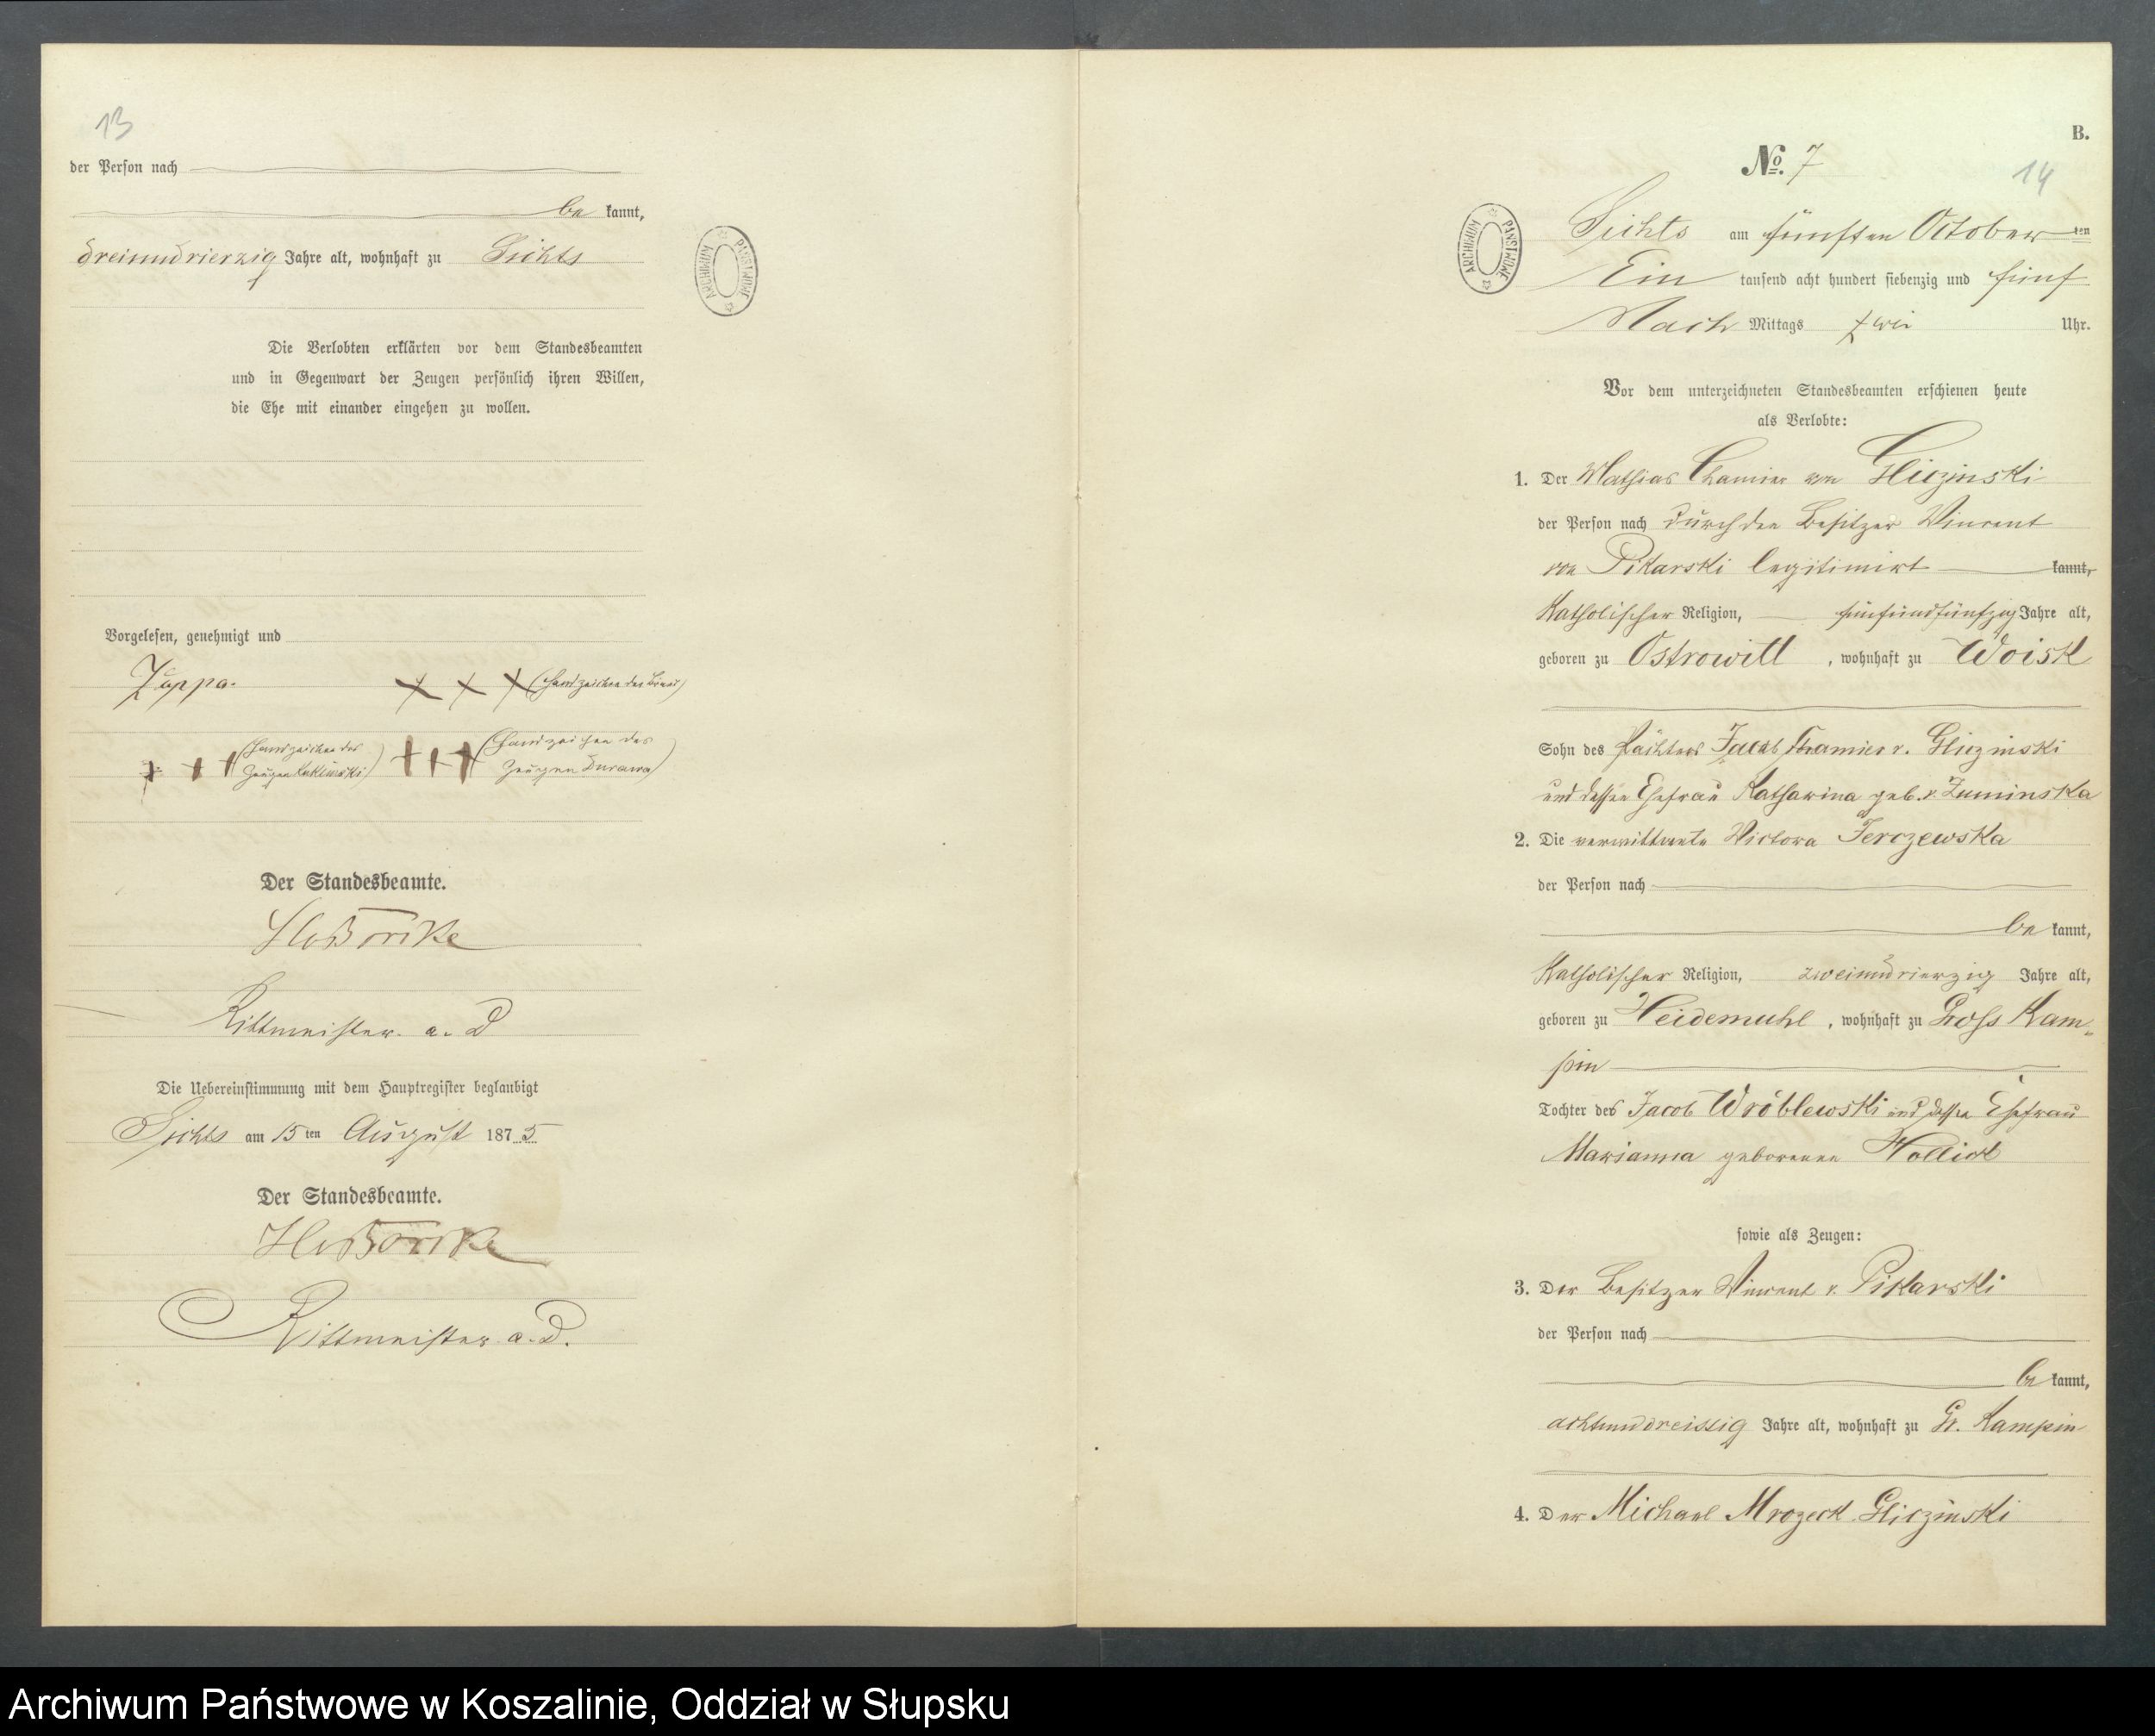 13
der Person nach
be kannt,
dreiundvierzig Jahre alt, wohnhaft zu Sichts
Die Verlobten erklärten vor dem Standesbeamten
und in Gegenwart der Zeugen persönlich ihren Willen,
die Ehe mit einander eingehen zu wollen.
Vorgelesen, genehmigt und
Zappa.
+ + + (Handzeichen der Braut)
+ + + (Handzeichen des
Zeugen)
+++ (Handzeichen des
Zeugen Durawa)
Der Standesbeamte.
Rittmeister a. D
Die Uebereinstimmung mit dem Hauptregister beglaubigt
Sichts am 15 ten August 1875
Der Standesbeamte.
Rittmeister a. D.
ARCHIWUM PAŃSTWOWE
B.
No. 7
14
ARCHIWUM PAŃSTWOWE
Sichts am fünften October ten
Ein tausend acht hundert siebenzig und fünf
Nach Mittags zwei Uhr.
Vor dem unterzeichneten Standesbeamten erschienen heute
als Verlobte:
1. Der Mathias Chamier von Gliczinski
der Person nach durch den Besitzer Vincent
von Pikarski legitimirt kannt,
Katholischer Religion, fünfundfünfzig Jahre alt,
geboren zu Ostrowitt, wohnhaft zu Woisk
Sohn des Pächters Jacob Chamier v. Gliczinski
und dessen Ehefrau Katharina geb. v. Zuminska
2. Die verwittwete Victora Jerczewska
der Person nach
be kannt,
Katholischer Religion, zweiundvierzig Jahre alt,
geboren zu Heidemuhl, wohnhaft zu Gross Kam-
pin
Tochter des Jacob Wröblewski und dessen Ehefrau
Marianna geborenen
sowie als Zeugen:
3. Der Besitzer Vincent v. Pikarski
der Person nach
be kannt,
achtunddreissig Jahre alt, wohnhaft zu Gr. Kampin
4. Der Michael Mrozeck Gliczinski
Archiwum Państwowe w Koszalinie, Oddział w Słupsku